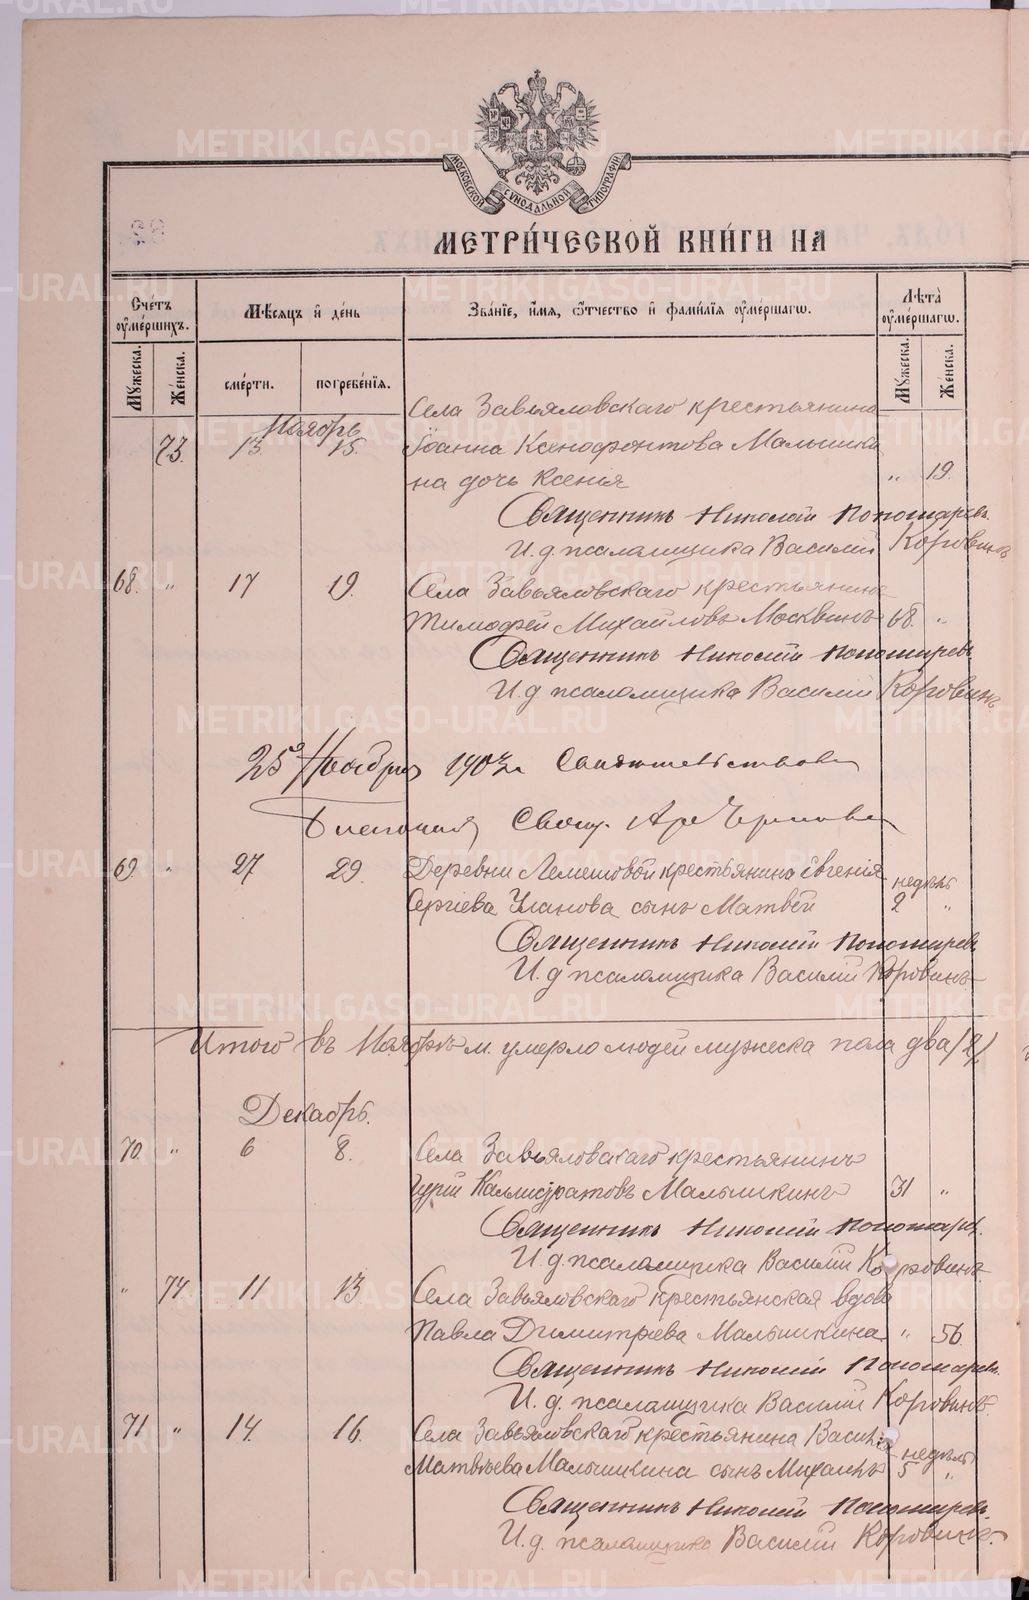 METRIKI.GASO-URAL.RU
МОСКОВСКОЙ СѴНОДАЛЬНОЙ ТИПОГРАФІИ
МЕТРИ́ЧЕСКОЙ КНИ́ГИ НА
Сче́тъ ᲂу҆ме́ршихъ.
Мѣ́сяцъ и҆ де́нь
Зва́нїе, и҆́мя, ѻ҆́тчество и҆ фами́лїя ᲂу҆ме́ршагѡ.
Лѣ́та ᲂу҆ме́ршагѡ.
Мꙋ́жеска.
Же́нска.
сме́рти.
погребе́нїя.
Мꙋ́жеска.
Же́нска.
Ноябрь
Села Завьяловскаго крестьянина
73. 13. 15. Іоанна Ксенофонтова Малышки
на дочь Ксенія „ 19.
Священникъ Николай Пономаревъ.
И. д. псаломщика Василій Коровинъ
68. „ 17 19. Села Завьяловскаго крестьянинъ
Тимофей Михайловъ Москвинъ 68. „
Священникъ Николай Пономаревъ
И. д. псаломщика Василій Коровинъ
25 Ноября 1903 г. Свидѣтельствовалъ
Благочинный Свящ.
69. „ 27 29. Деревни Лемешовой крестьянина Евгенія
Сергіева Уланова сынъ Матвей недѣль 2 „
Священникъ Николай Пономаревъ
И. д псаломщика Василій Коровинъ
Итого въ Ноябрѣ м. умерло людей мужеска пола два /2/
Декабрь.
70. „ 6 8. Села Завьяловскаго крестьянинъ
Гурій Каллистратовъ Малышкинъ 31 „
Священникъ Николай Пономаревъ.
И. д. псаломщика Василій Коровинъ.
„ 74 11 13. Села Завьяловскаго крестьянская вдова
Павла Димитріева Малышкина „ 56.
Священникъ Николай Пономаревъ.
И. д. псаломщика Василій Коровинъ.
71 „ 14. 16. Села Завьяловскаго крестьянина Василія
Матвѣева Малышкина сынъ Михаилъ недѣль 5 „
Священникъ Николай Пономаревъ.
И. д. псаломщика Василій Коровинъ.